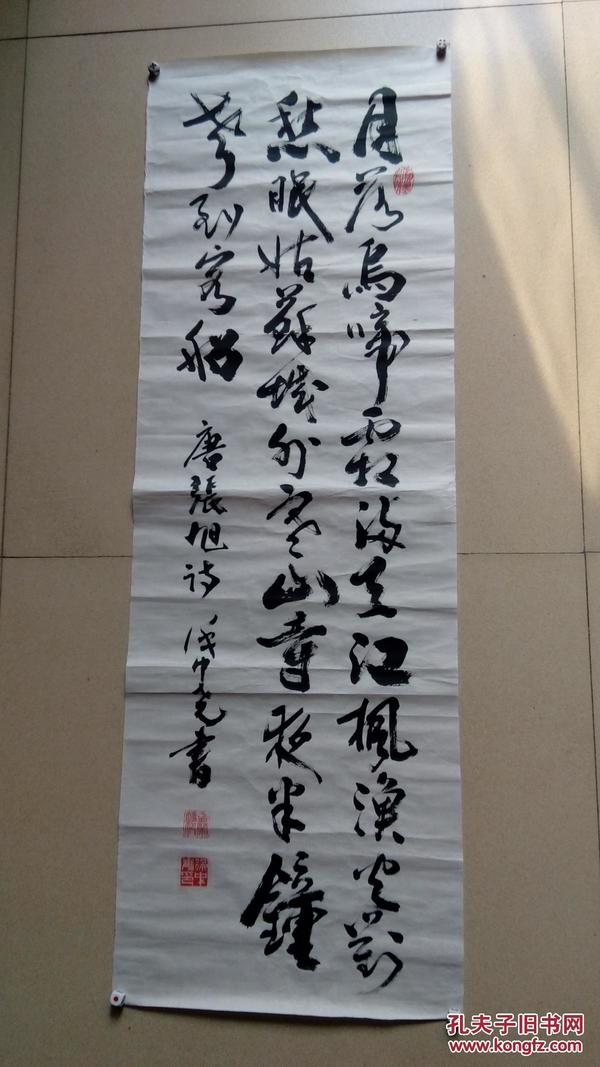 月落烏啼霜滿天江楓漁火對
愁眠姑蘇城外寒山寺夜半鐘
聲到客船
唐張旭詩 書
孔夫子旧书网
www.kongfz.com